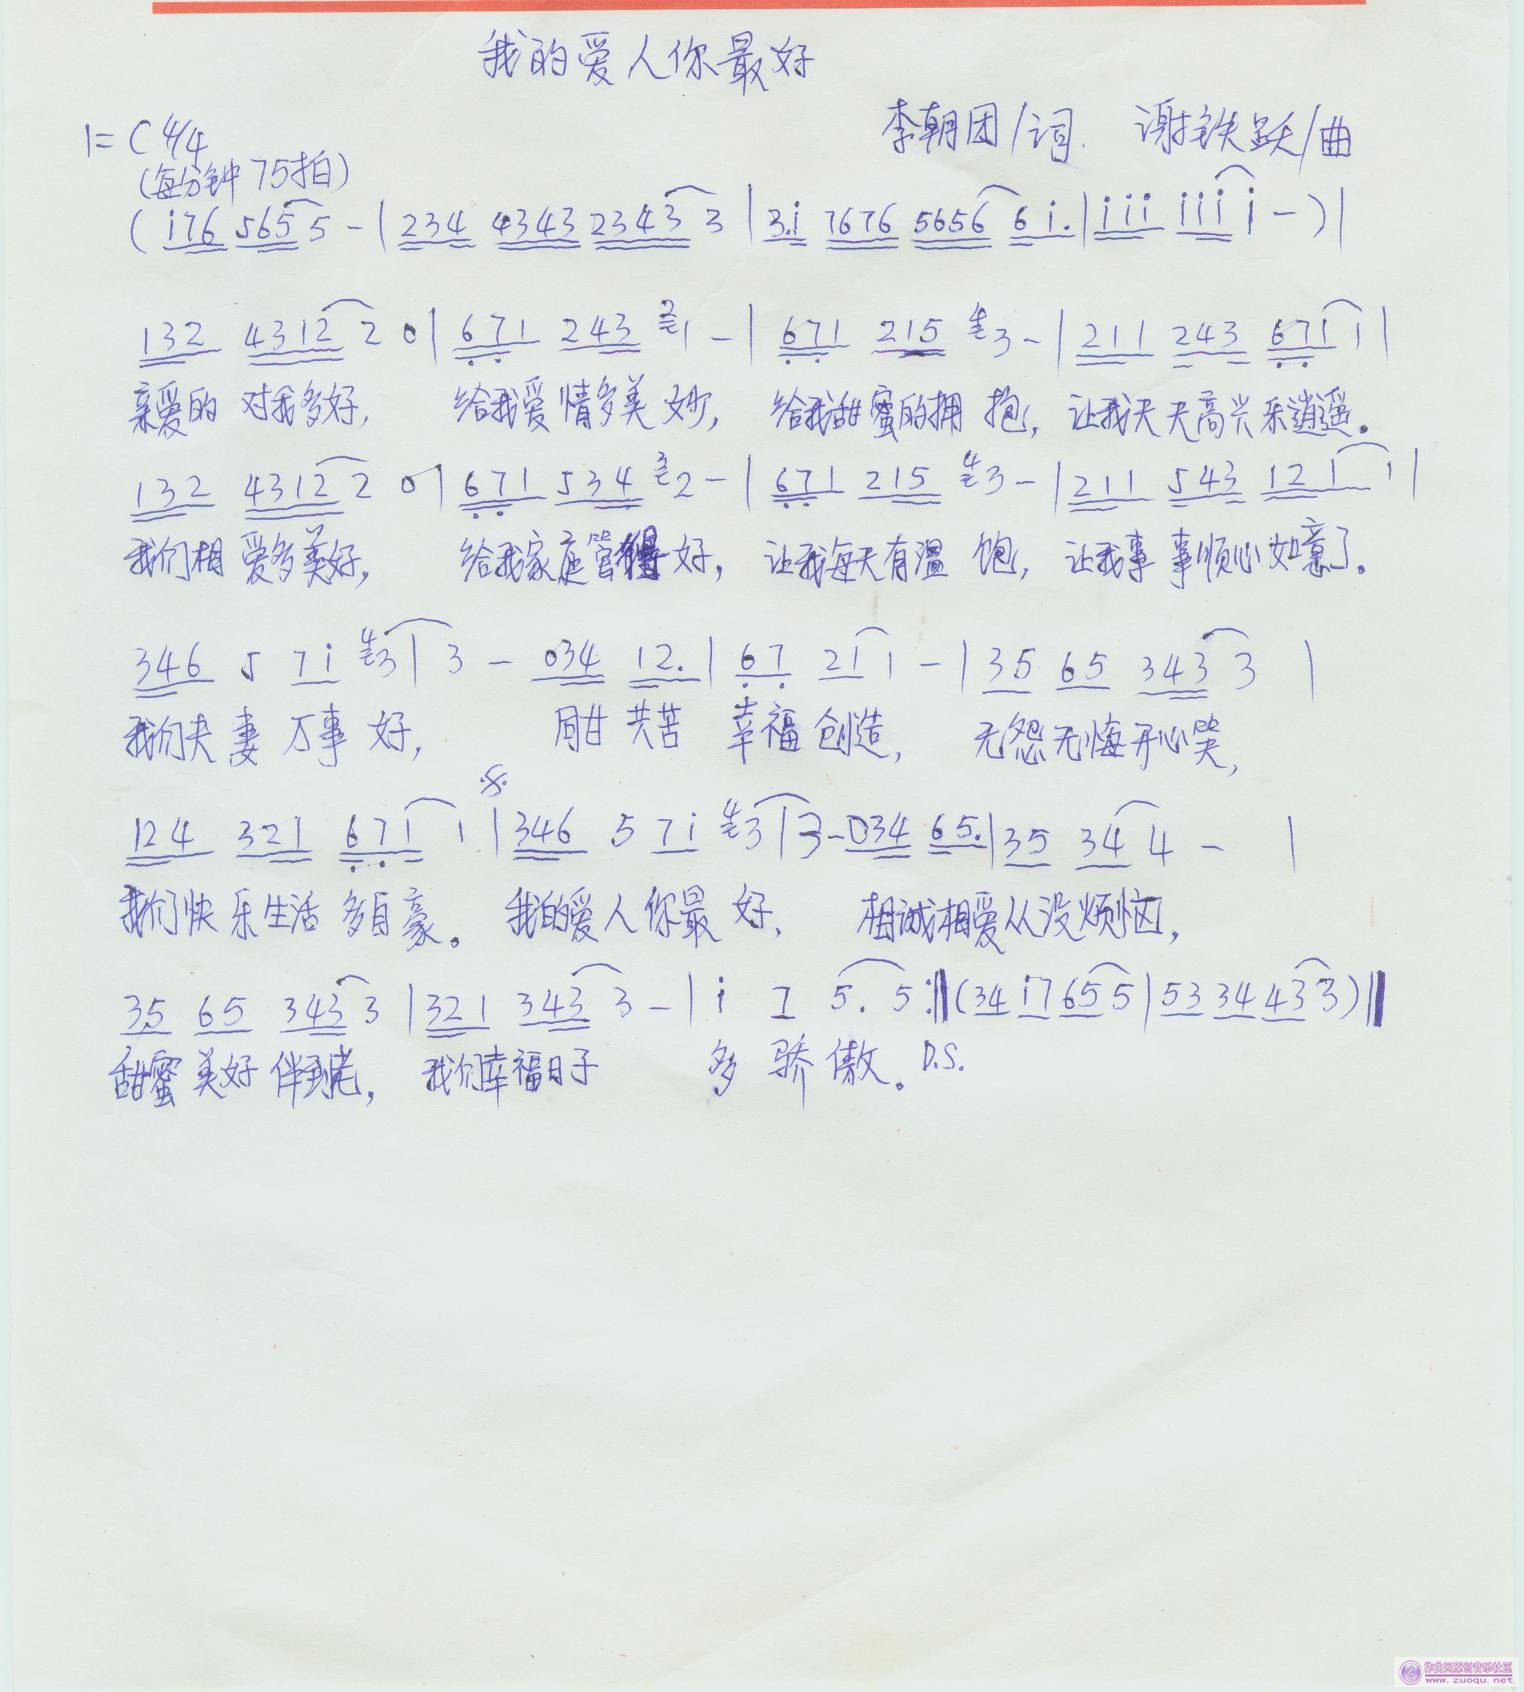 我的爱人你最好
1=C 4/4
李朝团/词. 谢铁跃/曲
(每分钟75拍)
(i76 5655 - | 234 4343 2343 3 | 3.i 7676 5656 6 i. | iii iii i - ) |
132 4312 2 0 | 671 243 2 1 - | 671 215 4 3 - | 211 243 671 1 |
亲爱的 对我多好, 给我爱情多美妙, 给我甜蜜的拥抱, 让我天天高兴乐逍遥。
132 4312 2 0 | 671 534 3 2 - | 671 215 4 3 - | 211 543 121 1 |
我们相爱多美好, 给我家庭管得好, 让我每天有温饱, 让我事事顺心如意了。
346 5 7i 4 3 | 3 - 034 12. | 67 21 1 - | 35 65 343 3 |
我们夫妻万事好, 同甘共苦 幸福创造, 无怨无悔开心笑,
124 321 671 1 | 346 5 7i 4 3 | 3 - 034 65. | 35 34 4 - |
我们快乐生活多自豪。 我的爱人你最好, 相诚相爱从没烦恼,
35 65 343 3 | 321 343 3 - | i 7 5. 5 :‖ (34 i7 65 5 | 53 34 43 3) ‖
甜蜜美好伴到老, 我们幸福日子 多骄傲。 D.S.
作曲网原创音乐社区
www.zuoqu.net